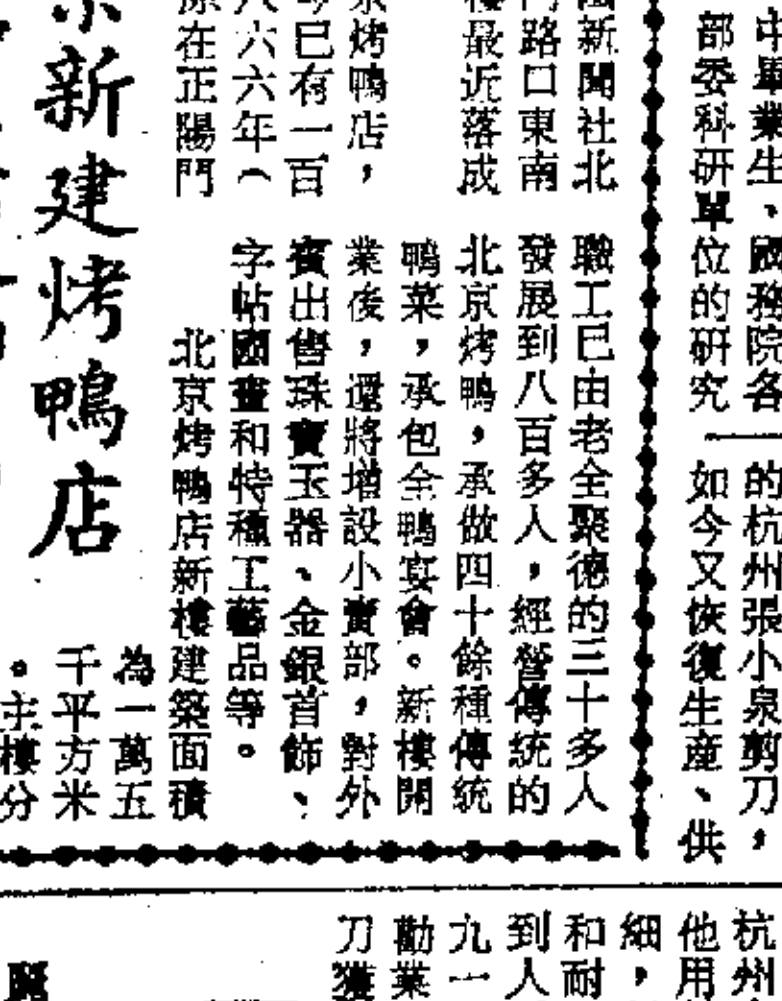 中畢業生、國務院各
部委科研單位的研究
的杭州張小泉剪刀，
如今又恢復生產、供
新聞社北
路口東南
樓最近落成
京烤鴨店，
今已有一百
八六六年（
原在正陽門
京新建烤鴨店
職工已由老全聚德的三十多人
發展到八百多人，經營傳統的
北京烤鴨，承做四十餘種傳統
鴨菜，承包全鴨宴會。新樓開
業後，還將增設小賣部，對外
賓出售珠寶玉器、金銀首飾、
字帖國畫和特種工藝品等。
北京烤鴨店新樓建築面積
為一萬五
千平方米
。主樓分
杭州
他用
細，
和耐
到人
九一
勸業
刀獲